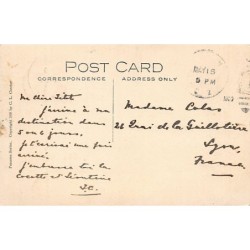 POST CARD
CORRESPONDENCE
ADDRESS ONLY
5 PM
Ma chère
J'arrive à ma
destination dans
5 ou 6 jours.
Je t'écrirai une fois
arrivé.
J'embrasse toi la
cocotte et
J.C.
Madame Colas
26 Quai de la Guillotière
Lyon
France